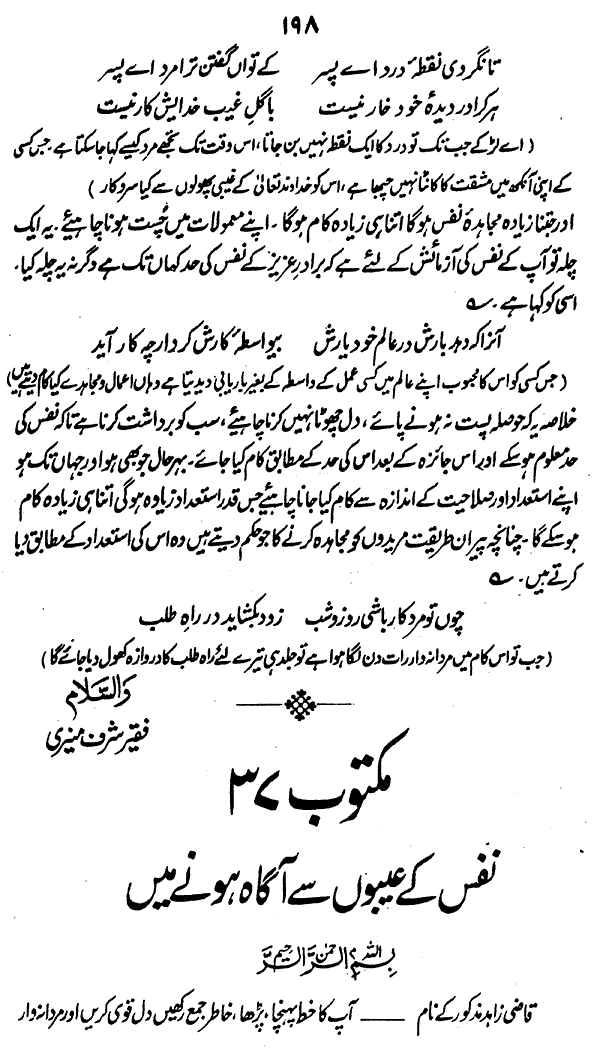 ۱۹۸
تا نگردی نقطۂ درد اے پسر کے تواں گفتن ترا مرد اے پسر
ہر کرا در دیدۂ خود خار نیست با گلِ غیب خدایش کار نیست
( اے لڑکے جب تک تو درد کا ایک نقطہ نہیں بن جاتا، اس وقت تک تجھے مرد کیسے کہا جا سکتا ہے۔ جس کسی
کے اپنی آنکھ میں مشقت کا کانٹا نہیں چبھا ہے، اس کو خداوند تعالیٰ کے غیبی پھولوں سے کیا سروکار )
اور جتنا زیادہ مجاہدۂ نفس ہوگا اتنا ہی زیادہ کام ہوگا۔ اپنے معمولات میں چُست ہونا چاہیئے۔ یہ ایک
چلہ تو آپ کے نفس کی آزمائش کے لئے ہے کہ برادرِ عزیز کے نفس کی حد کہاں تک ہے دگر نہ یہ چلہ کیا۔
اسی کو کہا ہے۔
آنرا کہ دہد بارش در عالم خود یارش بیواسطۂ کارش کردار چہ کار آید
( جس کسی کو اس کا محبوب اپنے عالم میں کسی عمل کے واسطہ کے بغیر باریابی دیدیتا ہے وہاں اعمال و مجاہدے کیا کام دیتے ہیں)
خلاصہ یہ کہ حوصلہ پست نہ ہونے پائے، دل چھوٹا نہیں کرنا چاہیئے، سب کو برداشت کرنا ہے تاکہ نفس کی
حد معلوم ہو سکے اور اس جائزہ کے بعد اس کی حد کے مطابق کام کیا جائے۔ بہرحال جو بھی ہو اور جہاں تک ہو
اپنے استعداد اور صلاحیت کے اندازہ سے کام کیا جانا چاہیئے جس قدر استعداد زیادہ ہوگی اتنا ہی زیادہ کام
ہو سکے گا۔ چنانچہ پیران طریقت مریدوں کو مجاہدہ کرنے کا جو حکم دیتے ہیں وہ اس کی استعداد کے مطابق دیا
کرتے ہیں۔
چوں تو مرد کار باشی روز و شب زود بکشاید در راہِ طلب
( جب تو اس کام میں مردانہ وار رات دن لگا ہوا ہے تو جلد ہی تیرے لئے راہ طلب کا دروازہ کھول دیا جائے گا )
والسَّلام
فقیر شرف منیری
مکتوب ۳۷
نفس کے عیبوں سے آگاہ ہونے میں
بسم اللہ الرحمن الرحیم
قاضی زاہد مذکور کے نام ــــــ آپ کا خط پہنچا، پڑھا، خاطر جمع رکھیں دل قوی کریں اور مردانہ وار